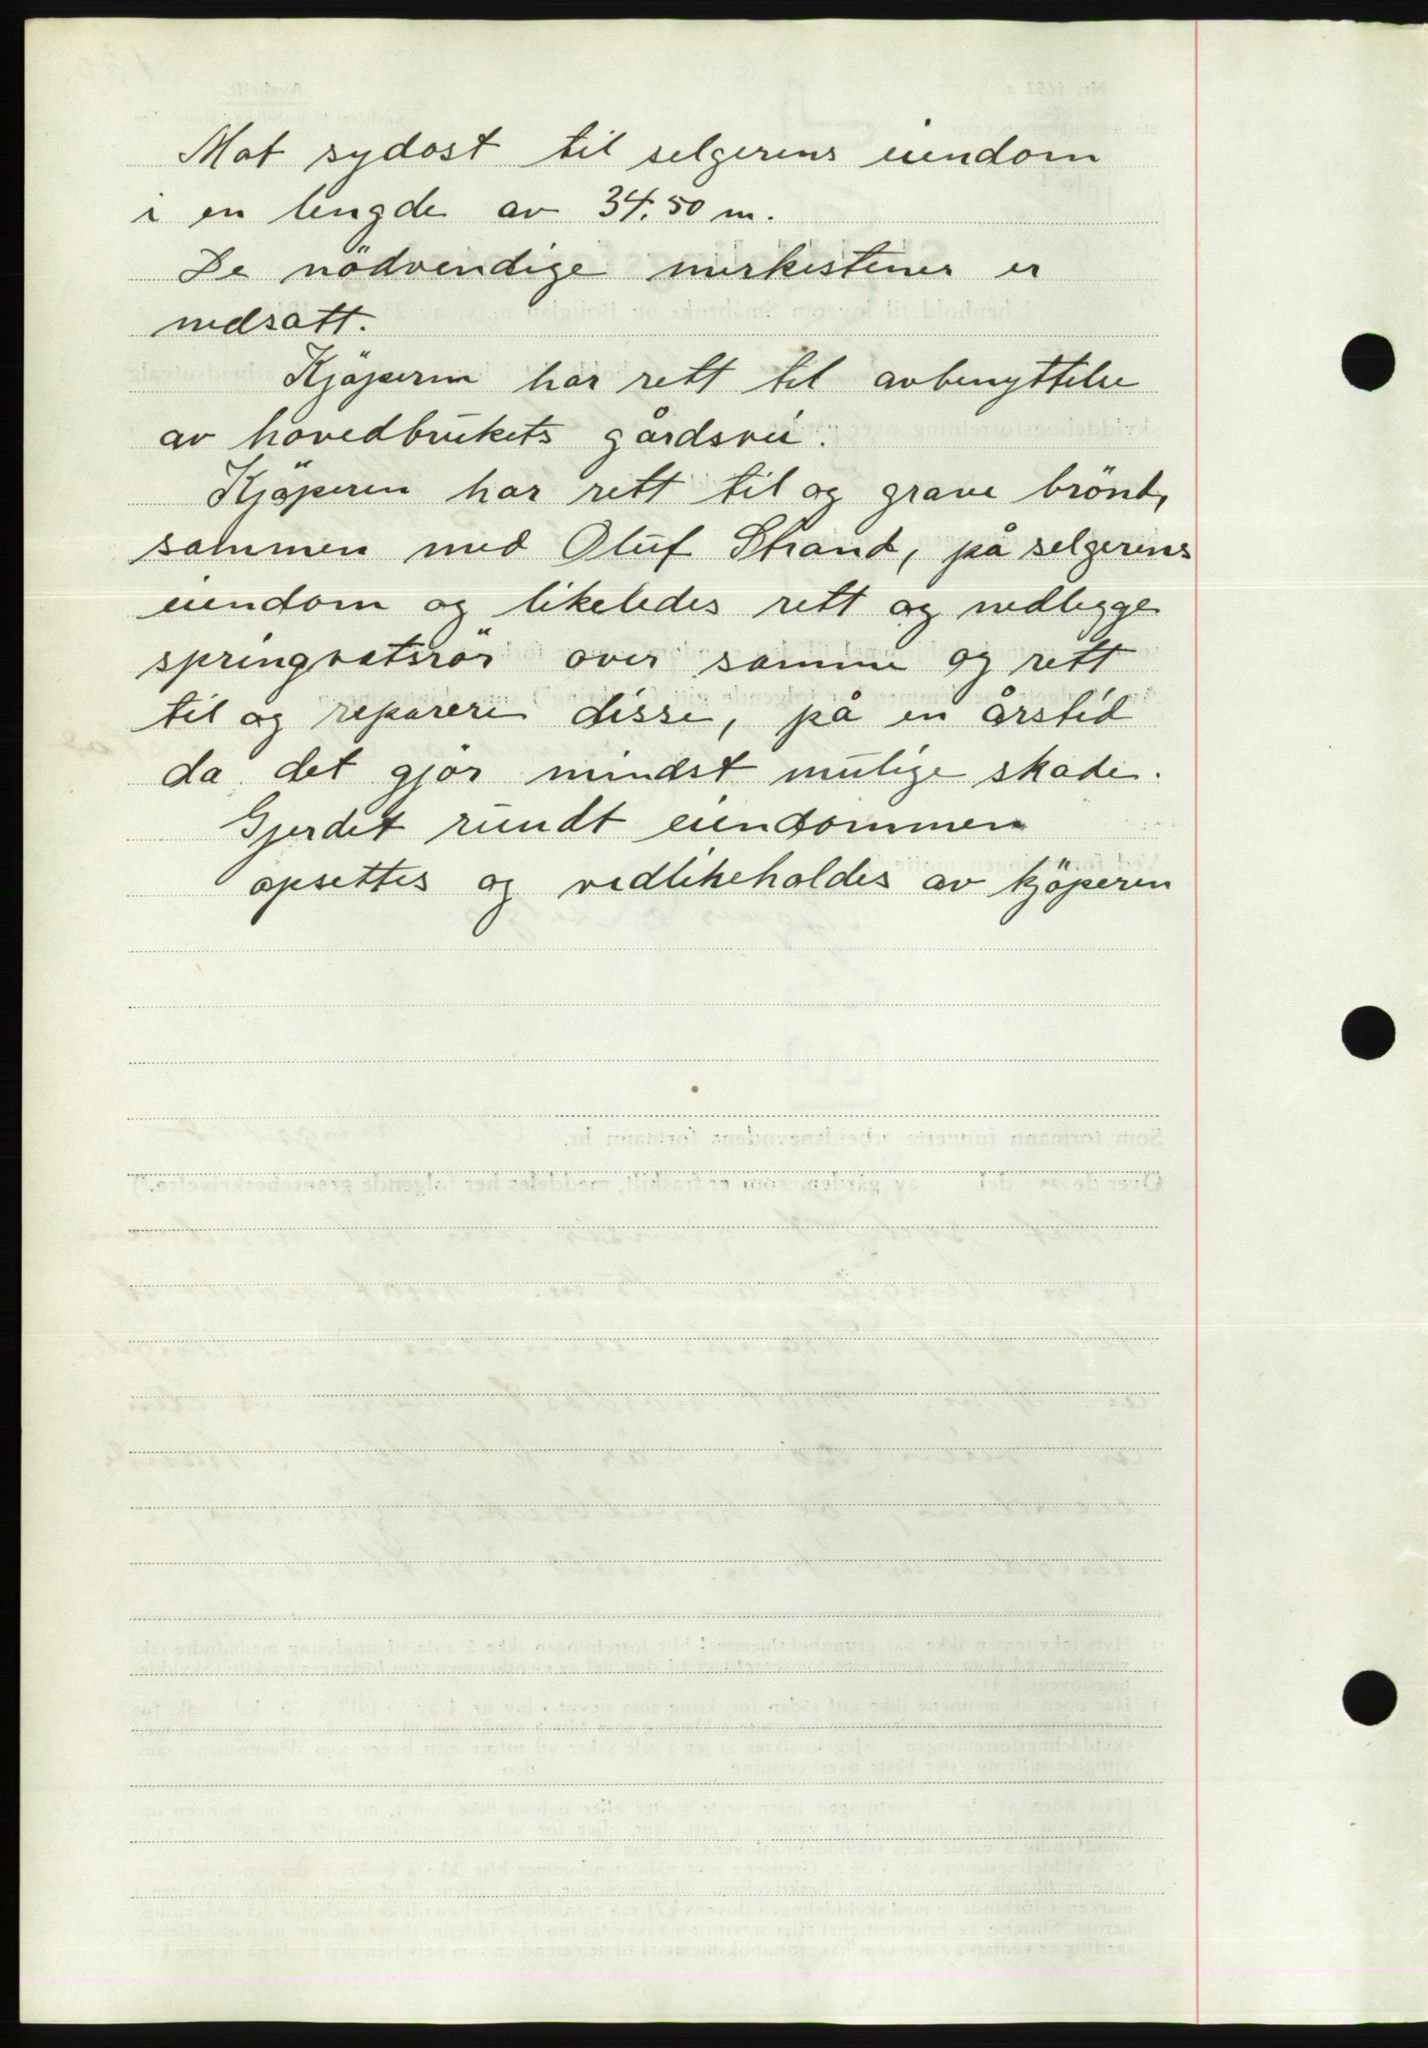 Mot sydost til selgerens eiendom
i en lengde av 34.50 m.
De nödvendige merkestener er
nedsatt.
Kjöperen har rett til avbenyttelse
av hovedbrukets gårdsvei.
Kjöperen har rett til og grave brönd,
sammen med Oluf Strand, på selgerens
eiendom og likeledes rett og nedlegge
springvatsrör over samme og rett
til og reparere disse, på en årstid
da det gjör mindst mulige skade.
Gjerdet rundt eiendommen
opsettes og vedlikeholdes av kjöperen